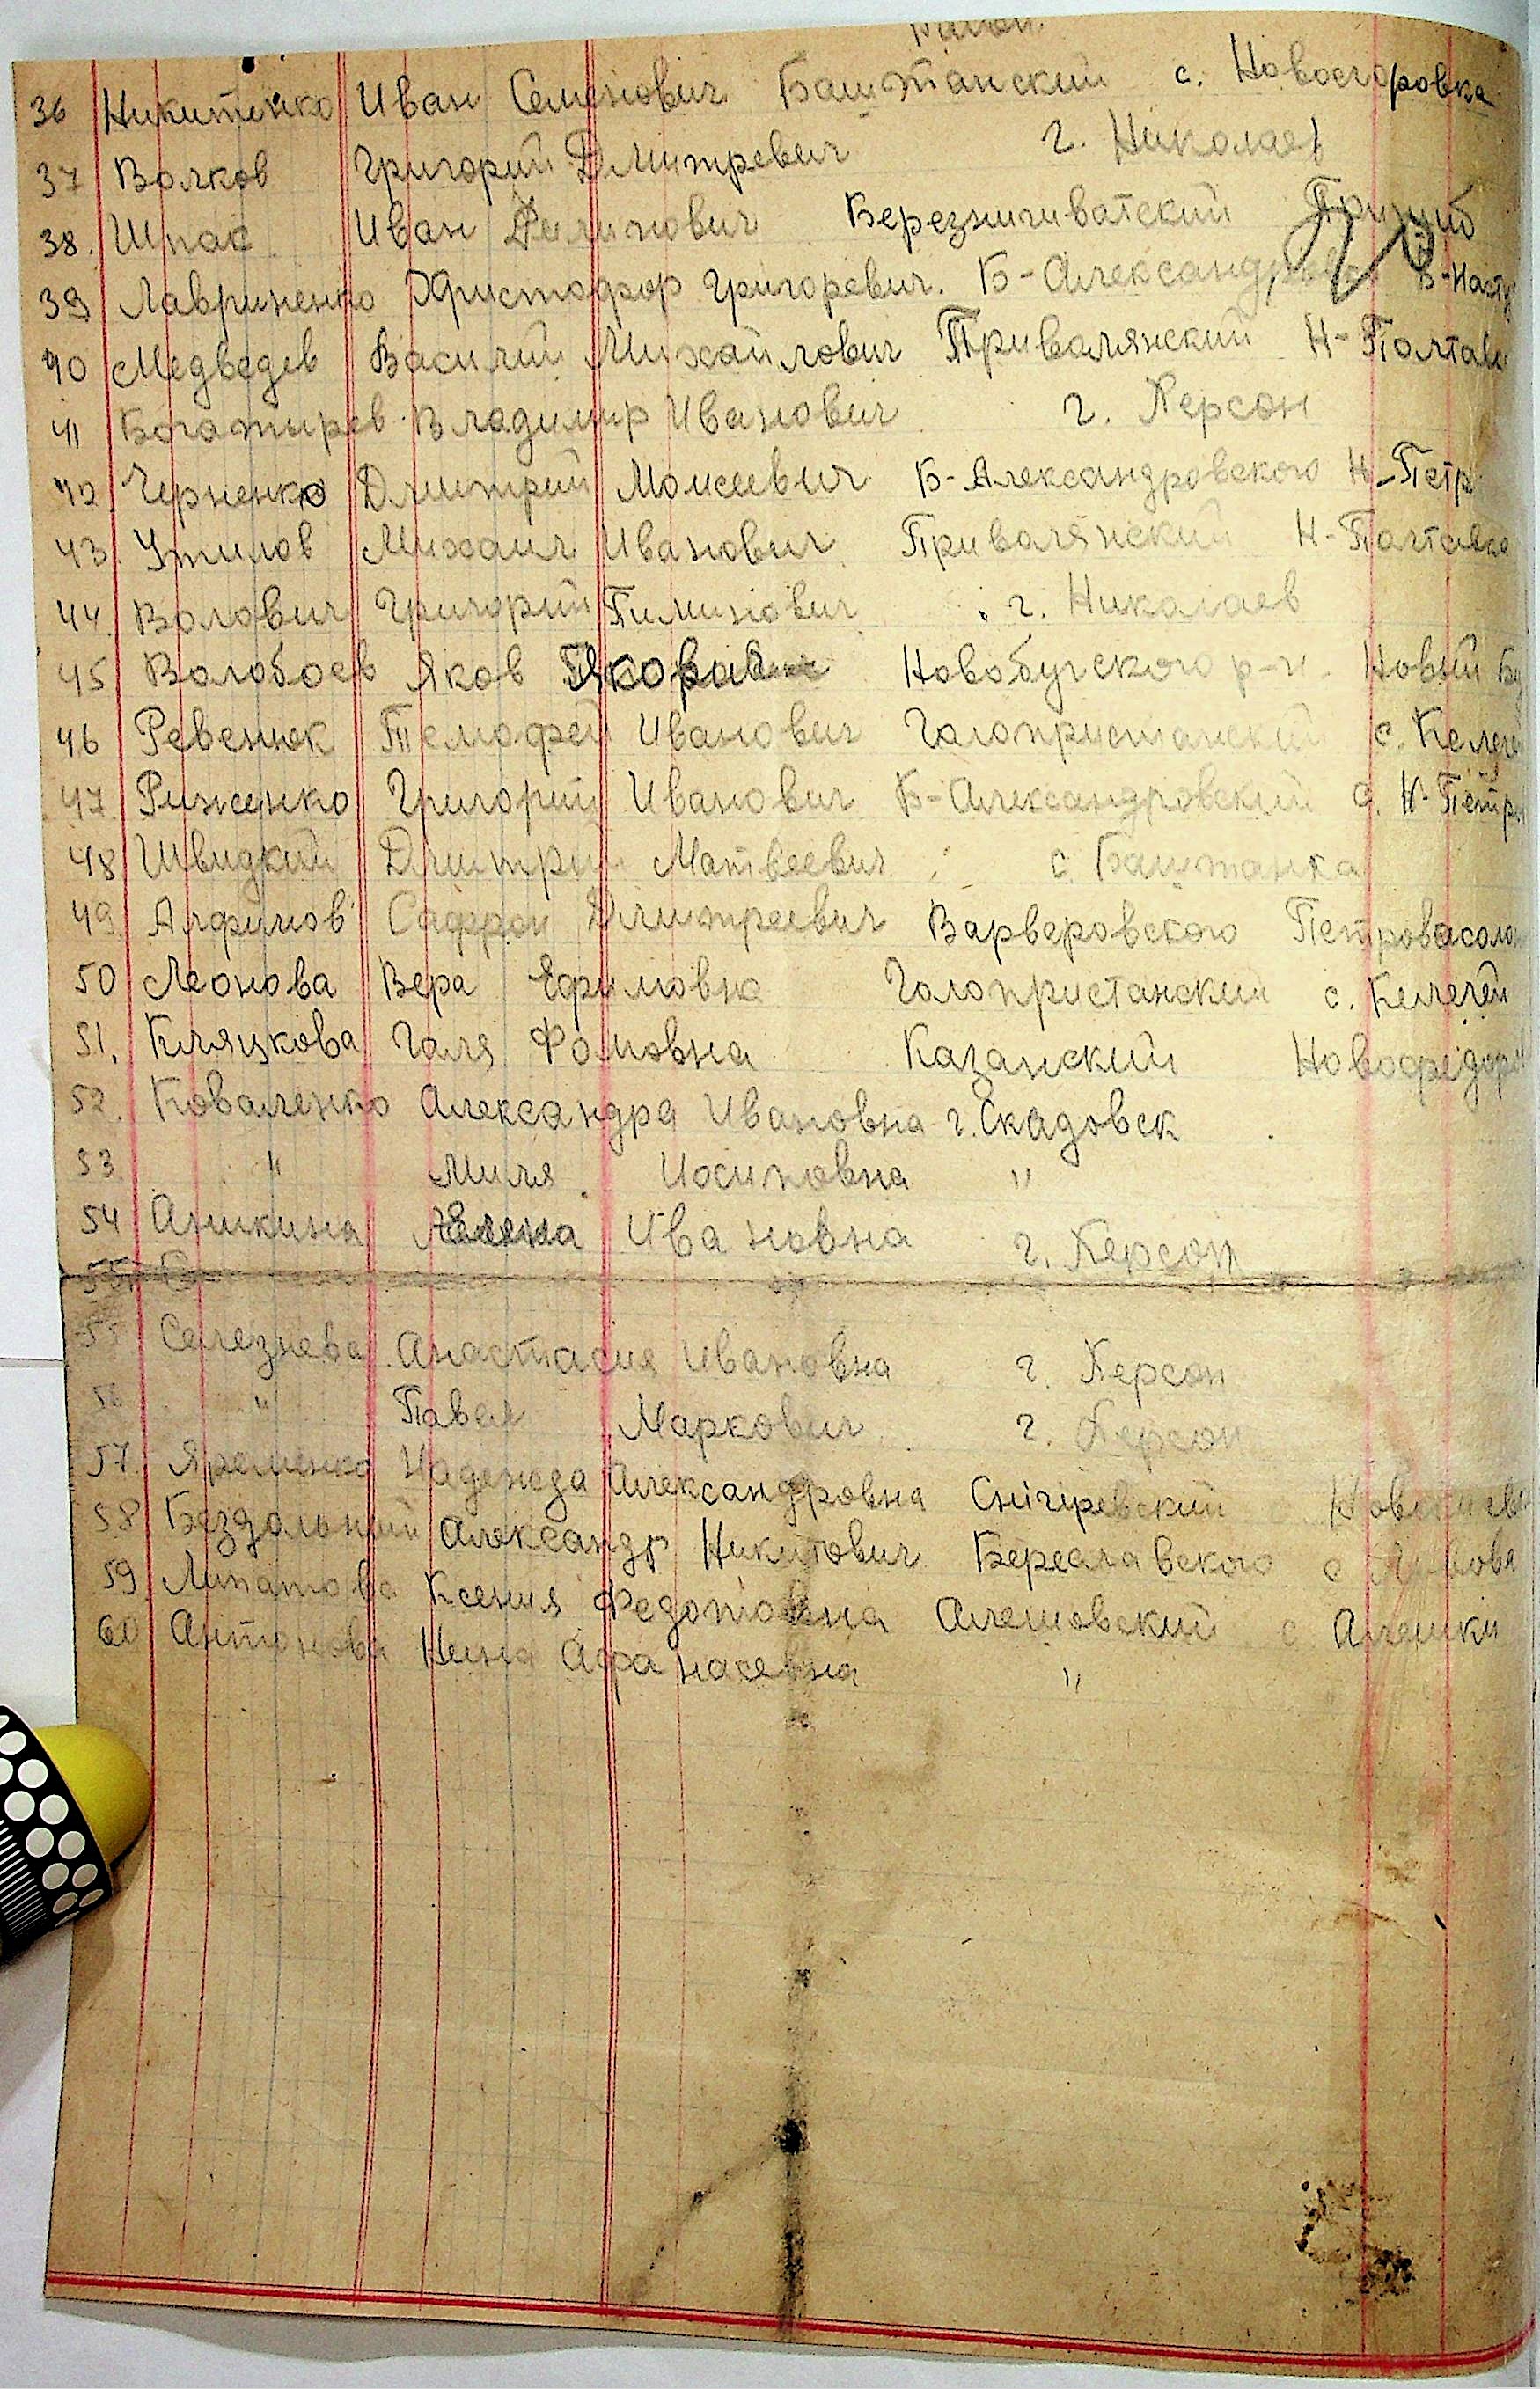 36 Никитенко Иван Семенович Баштанский с. Новоегоровка
37 Волков Григорий Дмитревич г. Николаев
38. Шпак Иван Филипович Березнигиватский
39 Лавриненко Христофор Григоревич. Б-Александровск
40 Медведев Василий Михайлович Привалянский Н-Полтавк
41 Богатырев Владимир Иванович г. Херсон
42 Черненко Дмитрий Моисеевич Б-Александровского Н-Петр
43. Утилов Михаил Иванович Привалянский Н-Полтавка
44. Волович Григорий Тиминович г. Николаев
45 Волобоев Яков Новобугского р-н Новый Бу
46 Ревенюк Темофей Иванович Галопристанский с. Келеге
47 Риженко Григорий Иванович Б-Александровский с. Н-Петр
48 Швидкий Дмитрий Матвеевич с. Баштанка
49 Алфимов Сафрон Дмитреевич Варваровского Петровосоло
50 Леонова Вера Ефимовна Голопристанский с. Келегей
51. Кляцкова Галя Фомовна Казанский Новофедор
52. Коваленко Александра Ивановна г. Скадовск
53 " Миля Иосиповна "
54 Аникина Елена Ивановна г. Херсон
55
55 Селезнева Анастасия Ивановна г. Херсон
56 " Павел Маркович г. Херсон
57. Яременко Надежда Александровна Снігіревский
58 Бездольный Александр Никитович Береславского с
59 Липатова Ксения Федотовна Алешовский с Алешки
60 Антонова Нина Афанасевна "